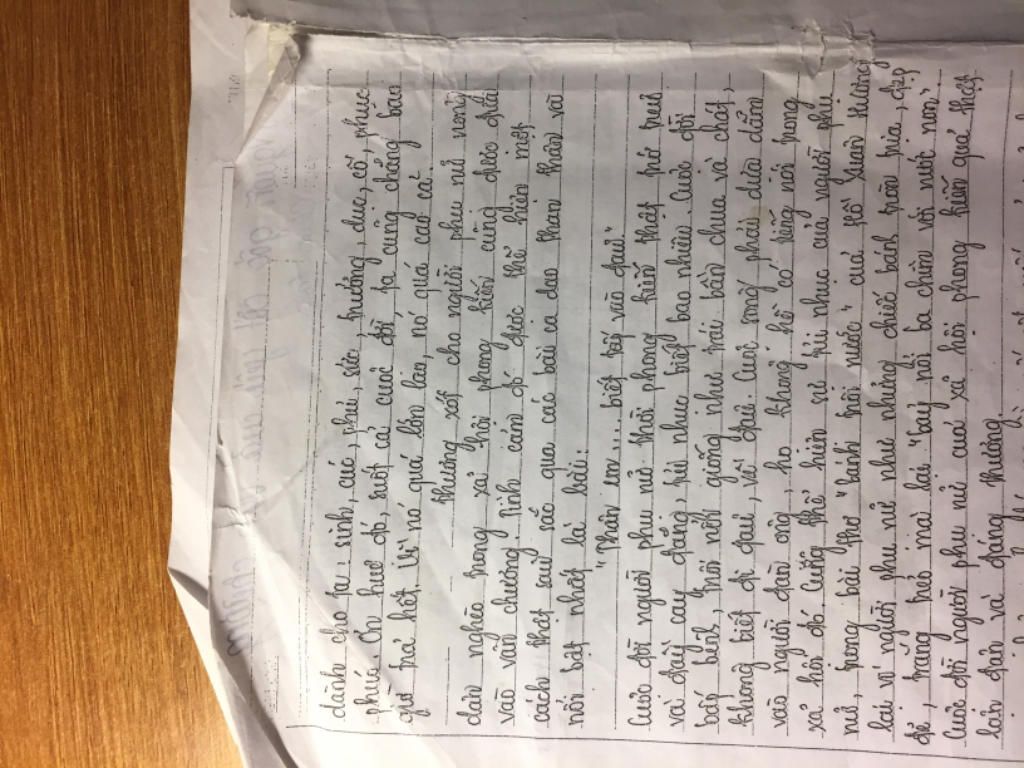 dành cho ta: sinh, cúc, phú, súc, trưởng, dục, cố, phục
phúc. Ơn huệ đó, suốt cả cuộc đời, ta cũng chẳng bao
giờ trả hết vì nó quá lớn lao, nó quá cao cả.
Thương xót cho người phụ nữ nông
dân nghèo trong xã hội phong kiến cũng được đưa
vào văn chương. tình cảm đó được thể hiện một
cách thật sâu sắc qua các bài ca dao than thân với
nổi bật nhất là bài:
"Thân em.... biết tấp vào đâu"
Cuộc đời người phụ nữ thời phong kiến thật
và đầy cay đắng, tủi nhục biết bao nhiêu. Cuộc đời
bấp bênh, trôi nổi giống như trái bần chua và chát,
không biết đi đâu, về đâu. Cuộc sống phải dựa dẫm
vào người đàn ông, họ không hề có tiếng nói trong
xã hội đó. Cũng thể hiện sự tủi nhục của người phụ
nữ, trong bài thơ "bánh trôi nước" của Hồ Xuân Hương
lại ví người phụ nữ như những chiếc bánh vừa đẹp
đẽ, trắng trẻo mai lại "bảy nổi ba chìm với nước non,
Cuộc đời người phụ nữ của xã hội phong kiến quá thật
lân đận và đáng thương.